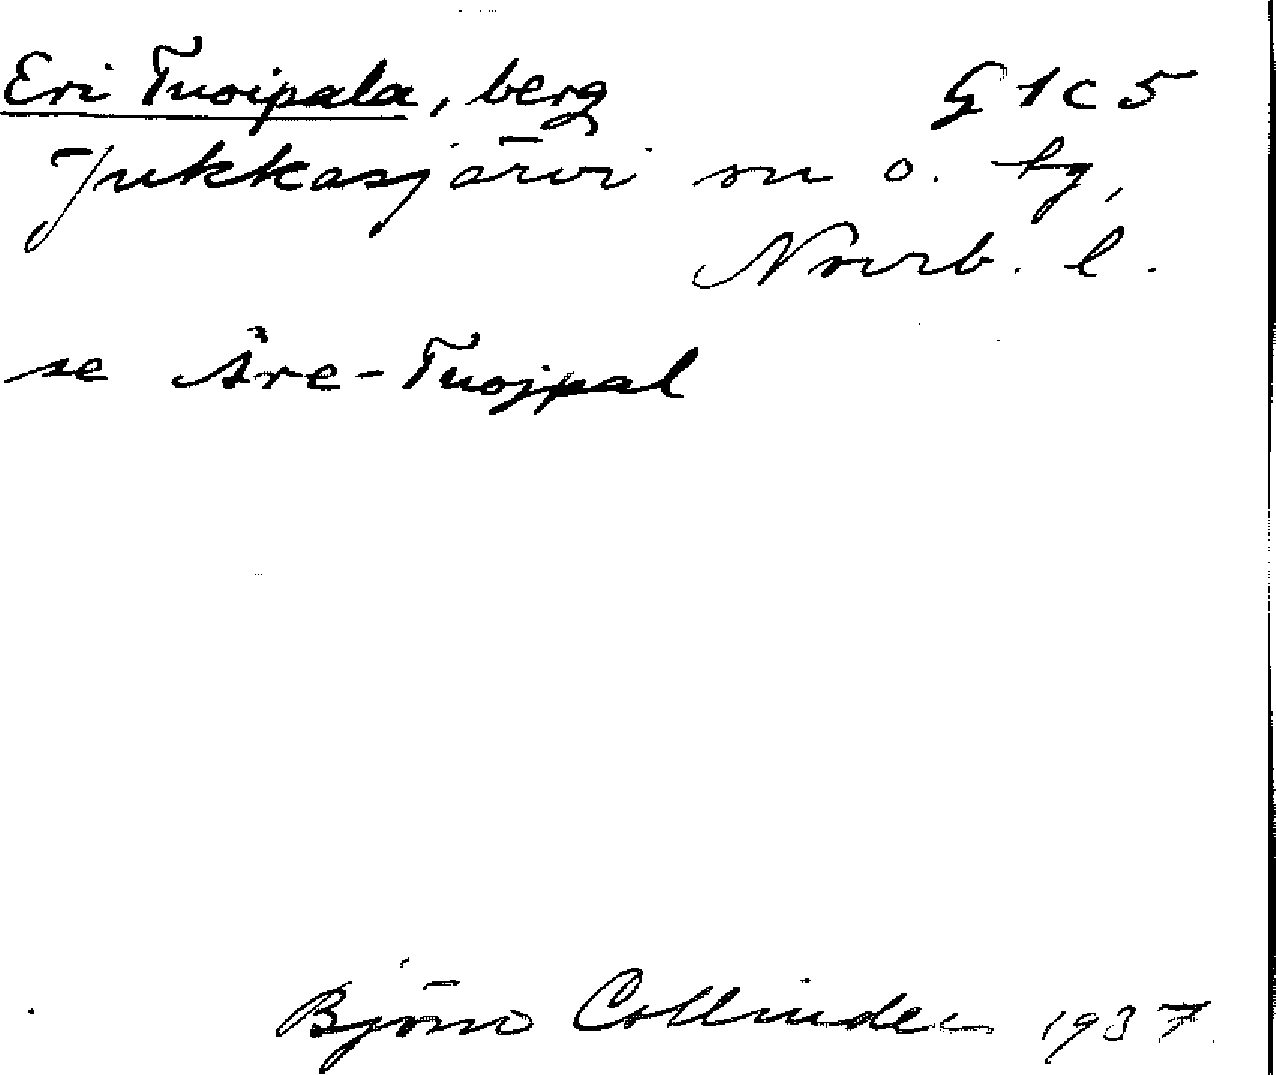 Eri Tuoipala, berg G 1 c 5
Jukkasjärvi sn o. tg,
Norrb. l.
se Åre-Tuojpal
Björn Collinder 1937